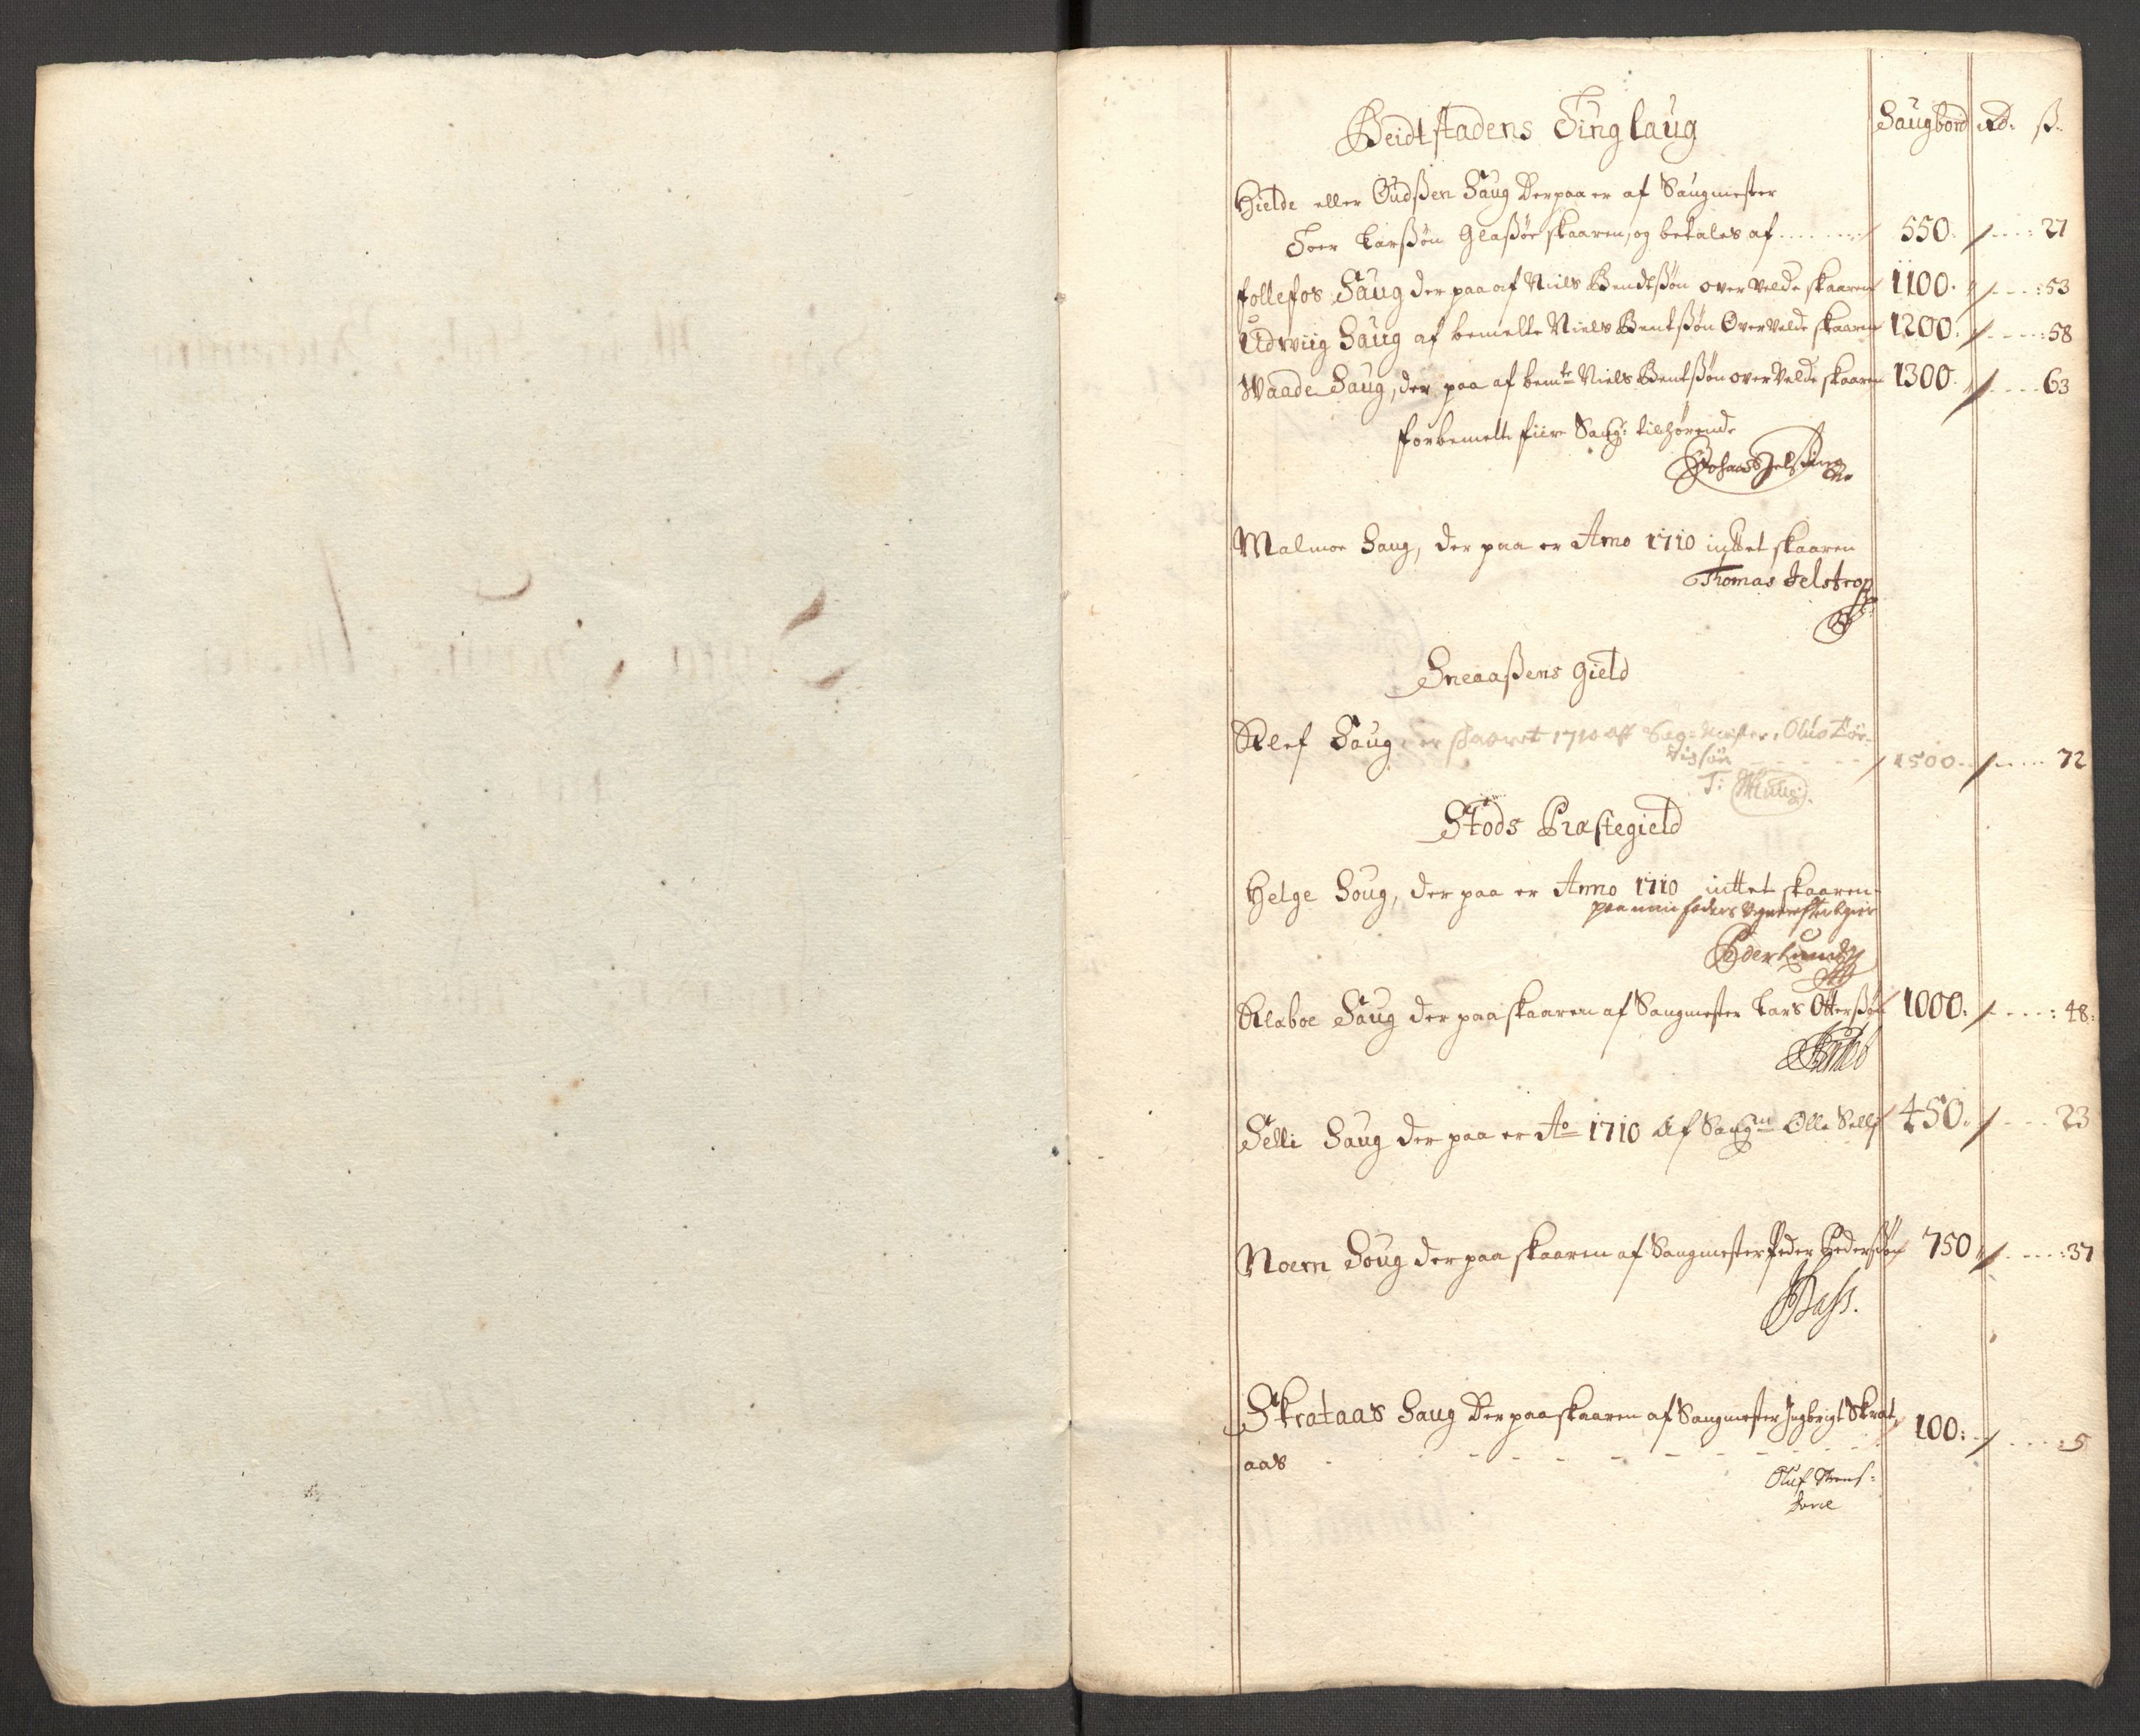 Beidtstadens Tinglaug Saugbord Rd: ß:
Hielde eller Oudßen Saug Der paa er af Saugmester
Toer Larßön Glaßöe skaaren, og betales af 550. 27
follefos Saug der paa af Niels Bendtßön over Velde skaaren 1100. 53
Udviig Saug af bemelte Niels Bentßön Over Velde skaaren 1200. 58
Waade Saug, der paa af bemte Niels Bentßön over Velde skaaren 1300. 63
forbemelte fiire Saug: tilhörende
Malmoe Saug, der paa er Anno 1710 inttet skaaren
Thomas Jelstrop
Sneaaßens gield
Klef Saug, er skaaret 1710 aff Sag-Mester, Oluf Tör-
rißön 1500. 72
Stods Præstegield
Helge Soug, der paa er Anno 1710 inttet skaaren
paa min faders Vegne
Peder Lund
Klaboe Saug der paa skaaren af Saugmester Lars Otterßön 1000. 48:
Selli Saug der paa er Ao 1710 Af Saugm Olle Selli 450. 23
Noem Soug der paa skaaren af Saugmester Peder Pederßön 750 37
Skrataas Saug Der paa skaaren af Saugmester Ingbrigt Skrat, 100: 5
aas
Oluf